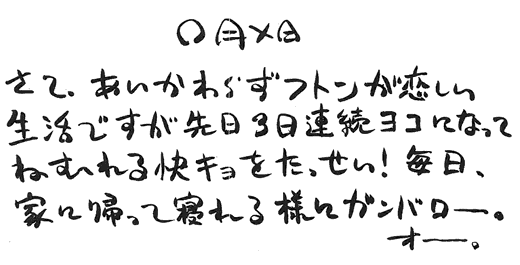 〇月×日
さて。あいかわらずフトンが恋しい
生活ですが先日3日連続ヨコになって
ねむれる快キョをたっせい!毎日、
家に帰って寝れる様にガンバロー。
オー。